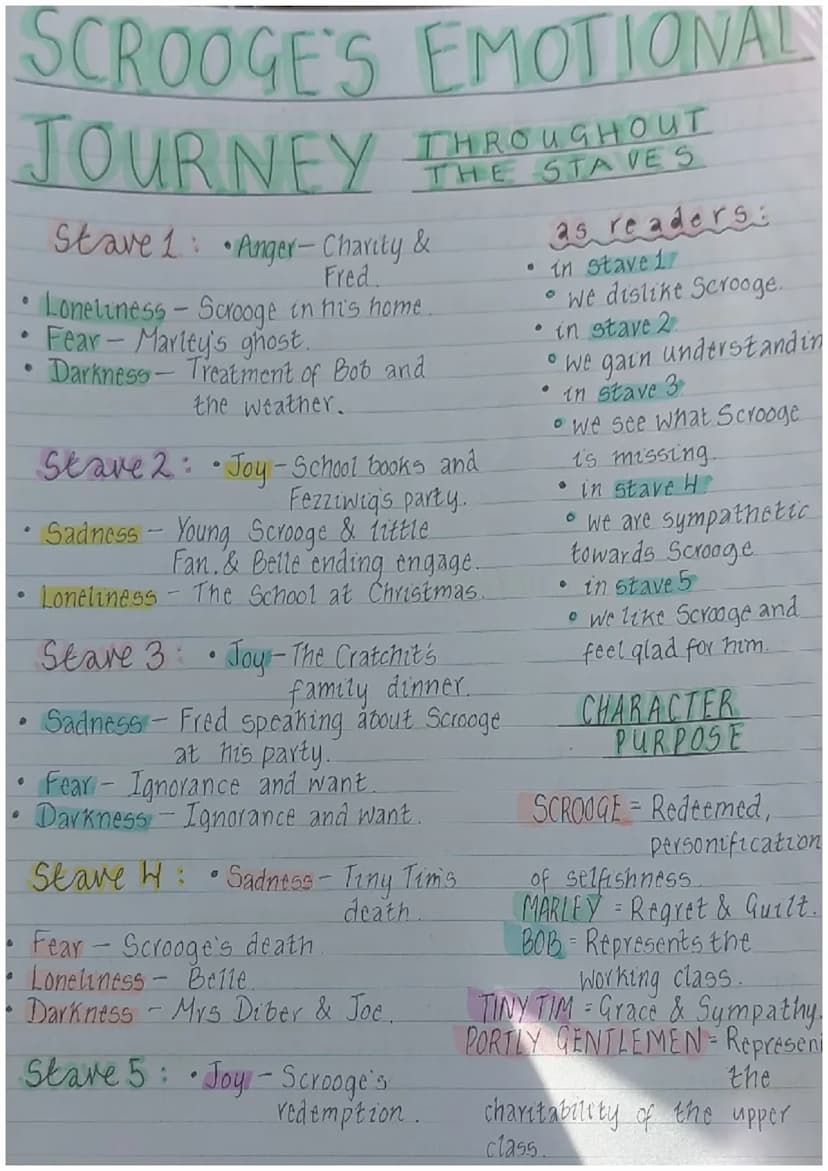 SCROOGE'S EMOTIONAL
JOURNEY THROUGHOUT
THE STAVES
Stave 1: • Anger – Charity &
Fred.
• Loneliness – Scrooge in his home.
• Fear – Marley's ghost.
• Darkness – Treatment of Bob and
the weather.
Stave 2: • Joy – School books and
Fezziwig's party.
• Sadness – Young Scrooge & little
Fan. & Belle ending engage.
• Loneliness – The School at Christmas.
Stave 3: • Joy – The Cratchit's
family dinner.
• Sadness – Fred speaking about Scrooge
at his party.
• Fear – Ignorance and want.
• Darkness – Ignorance and want.
Stave 4: • Sadness – Tiny Tim's
death.
• Fear – Scrooge's death
• Loneliness – Belle
• Darkness – Mrs Diber & Joe.
Stave 5: • Joy – Scrooge's
redemption.
as readers:
• in stave 1
• we dislike Scrooge.
• in stave 2
• we gain understandin
• in stave 3
• we see what Scrooge
is missing.
• in stave 4
• we are sympathetic
towards Scrooge
• in stave 5
• we like Scrooge and
feel glad for him.
CHARACTER
PURPOSE
SCROOGE = Redeemed,
personification
of selfishness
MARLEY = Regret & Guilt.
BOB = Represents the
working class.
TINY TIM = Grace & Sympathy.
PORTLY GENTLEMEN = Represen
the
charitability of the upper
class.